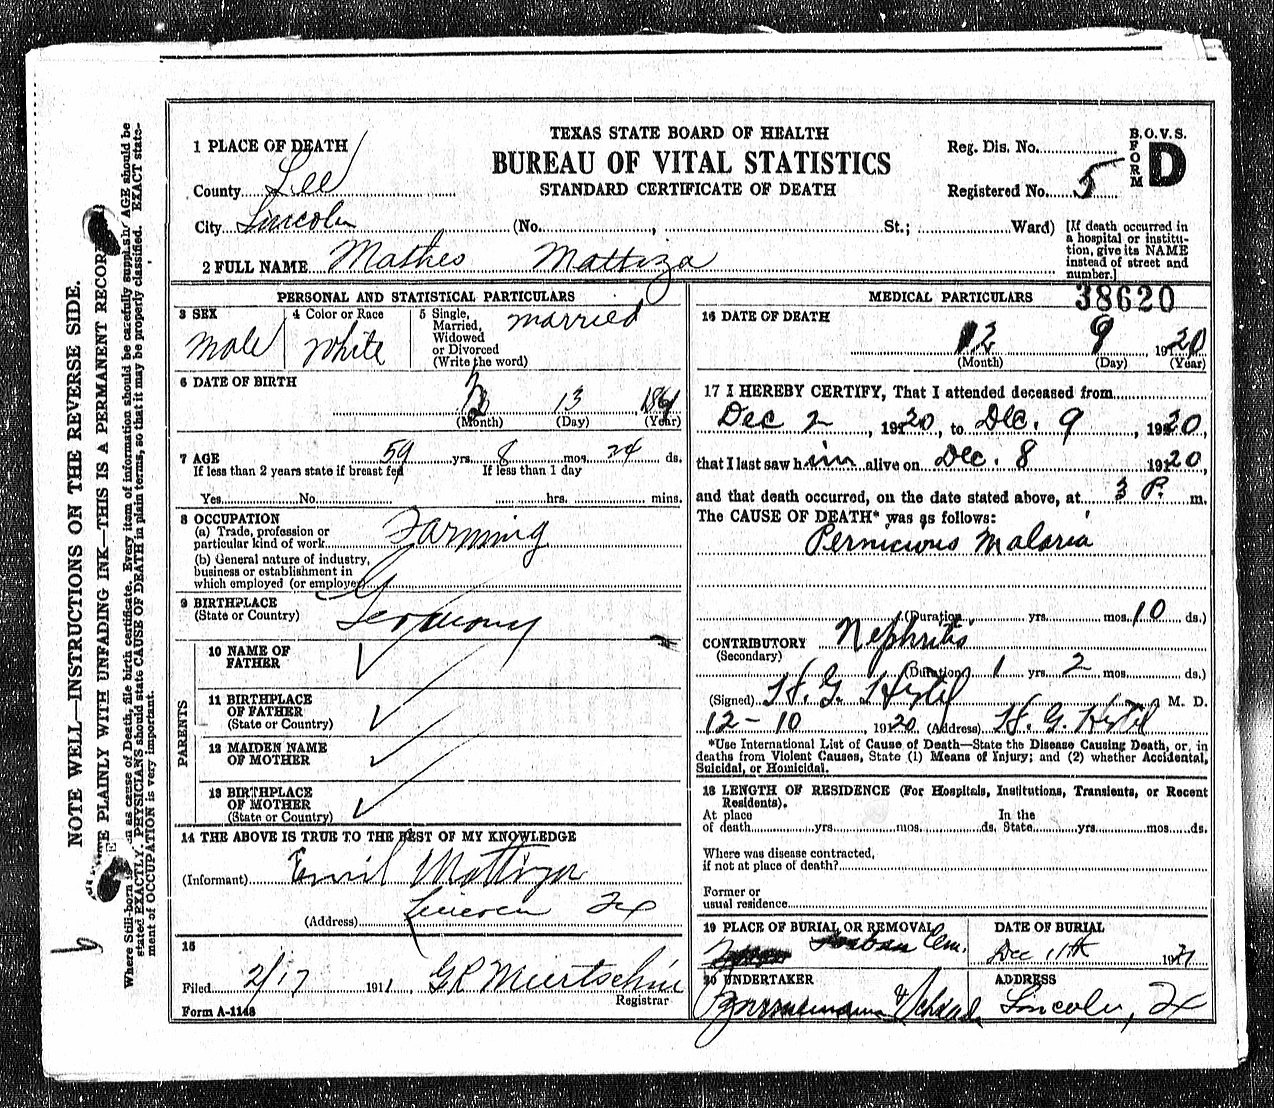 TEXAS STATE BOARD OF HEALTH
BUREAU OF VITAL STATISTICS
STANDARD CERTIFICATE OF DEATH
1 PLACE OF DEATH
County Lee
City Lincoln (No. , St.; Ward)
2 FULL NAME Matheo Mattiza
Reg. Dis. No.
Registered No. 5
B.O.V.S.
FORM D
[If death occurred in
a hospital or institu-
tion, give its NAME
instead of street and
number.]
PERSONAL AND STATISTICAL PARTICULARS
3 SEX
Male
4 Color or Race
White
5 Single,
Married,
Widowed
or Divorced
(Write the word)
married
6 DATE OF BIRTH
13
(Month) (Day) (Year)
7 AGE 59 yrs. 8 mos. 24 ds.
If less than 2 years state if breast fed If less than 1 day
Yes No. hrs. mins.
8 OCCUPATION
(a) Trade, profession or
particular kind of work Farming
(b) General nature of industry,
business or establishment in
which employed (or employer)
9 BIRTHPLACE
(State or Country) Germany
PARENTS
10 NAME OF
FATHER
11 BIRTHPLACE
OF FATHER
(State or Country)
12 MAIDEN NAME
OF MOTHER
13 BIRTHPLACE
OF MOTHER
(State or Country)
14 THE ABOVE IS TRUE TO THE BEST OF MY KNOWLEDGE
(Informant) Emil Mattiza
(Address) Lincoln Tx
15
Filed 2/17 1911 Registrar
Form A-1148
MEDICAL PARTICULARS 38620
16 DATE OF DEATH
12 9 1920
(Month) (Day) (Year)
17 I HEREBY CERTIFY, That I attended deceased from
Dec 2, 1920, to Dec. 9, 1920,
that I last saw him alive on Dec. 8 1920,
and that death occurred, on the date stated above, at 3 P. m.
The CAUSE OF DEATH* was as follows:
Pernicious Malaria
(Duration yrs. mos. 10 ds.)
CONTRIBUTORY Nephritis
(Secondary)
(Duration 1 yrs. 2 mos. ds.)
(Signed) H. G. M. D.
12-10 1920 (Address) H. G.
*Use International List of Cause of Death—State the Disease Causing Death, or, in
deaths from Violent Causes, State (1) Means of Injury; and (2) whether Accidental,
Suicidal, or Homicidal.
18 LENGTH OF RESIDENCE (For Hospitals, Institutions, Transients, or Recent
Residents).
At place In the
of death yrs. mos. ds. State yrs. mos. ds.
Where was disease contracted,
if not at place of death?
Former or
usual residence
19 PLACE OF BURIAL OR REMOVAL
Cem.
DATE OF BURIAL
Dec 11th
20 UNDERTAKER
ADDRESS
Lincoln, Tx
NOTE WELL—INSTRUCTIONS ON THE REVERSE SIDE.
PLAINLY WITH UNFADING INK—THIS IS A PERMANENT RECORD
as cause of Death, file birth certificate. Every item of information should be carefully supplied. AGE should be
stated EXACTLY. PHYSICIANS should state CAUSE OF DEATH in plain terms, so that it may be properly classified. EXACT state-
ment of OCCUPATION is very important.